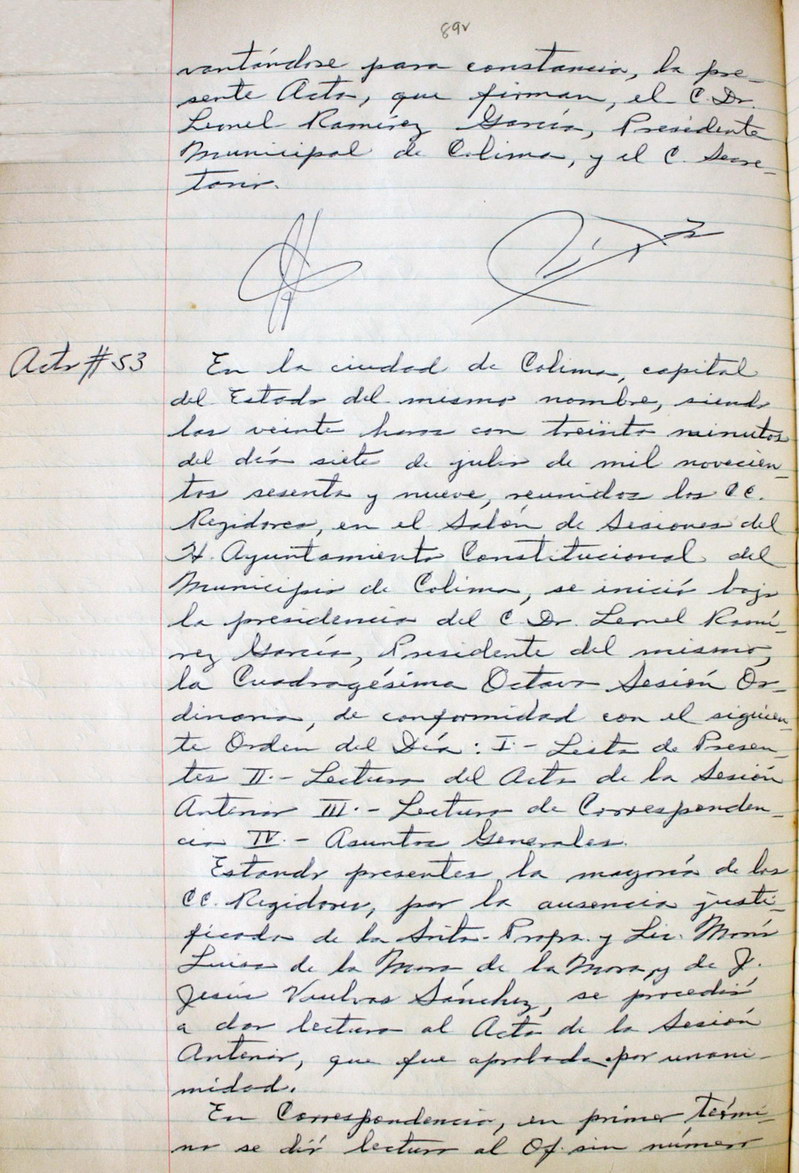 89v
vantándose para constancia, la pre-
sente Acta, que firman, el C. Dr.
Leonel Ramírez García, Presidente
Municipal de Colima, y el C. Secre-
tario.
Acta #53
En la ciudad de Colima, capital
del Estado del mismo nombre, siendo
las veinte horas con treinta minutos
del día siete de julio de mil novecien-
tos sesenta y nueve, reunidos los CC.
Regidores, en el Salón de Sesiones del
H. Ayuntamiento Constitucional del
Municipio de Colima, se inició bajo
la presidencia del C. Dr. Leonel Ramí-
rez García, Presidente del mismo,
la Cuadragésima Octava Sesión Or-
dinaria, de conformidad con el siguien-
te Orden del Día: I.- Lista de Presen-
tes II.- Lectura del Acta de la Sesión
Anterior III.- Lectura de Corresponden-
cia IV.- Asuntos Generales.
Estando presentes la mayoría de los
CC. Regidores, por la ausencia justi-
ficada de la Srita. Profa. y Lic. María
Luisa de la Mora de la Mora, y de J.
Jesús Vuelvas Sánchez, se procedió
a dar lectura al Acta de la Sesión
Anterior, que fue aprobada por unani-
midad.
En Correspondencia, en primer térmi-
no se dió lectura al Of. sin número